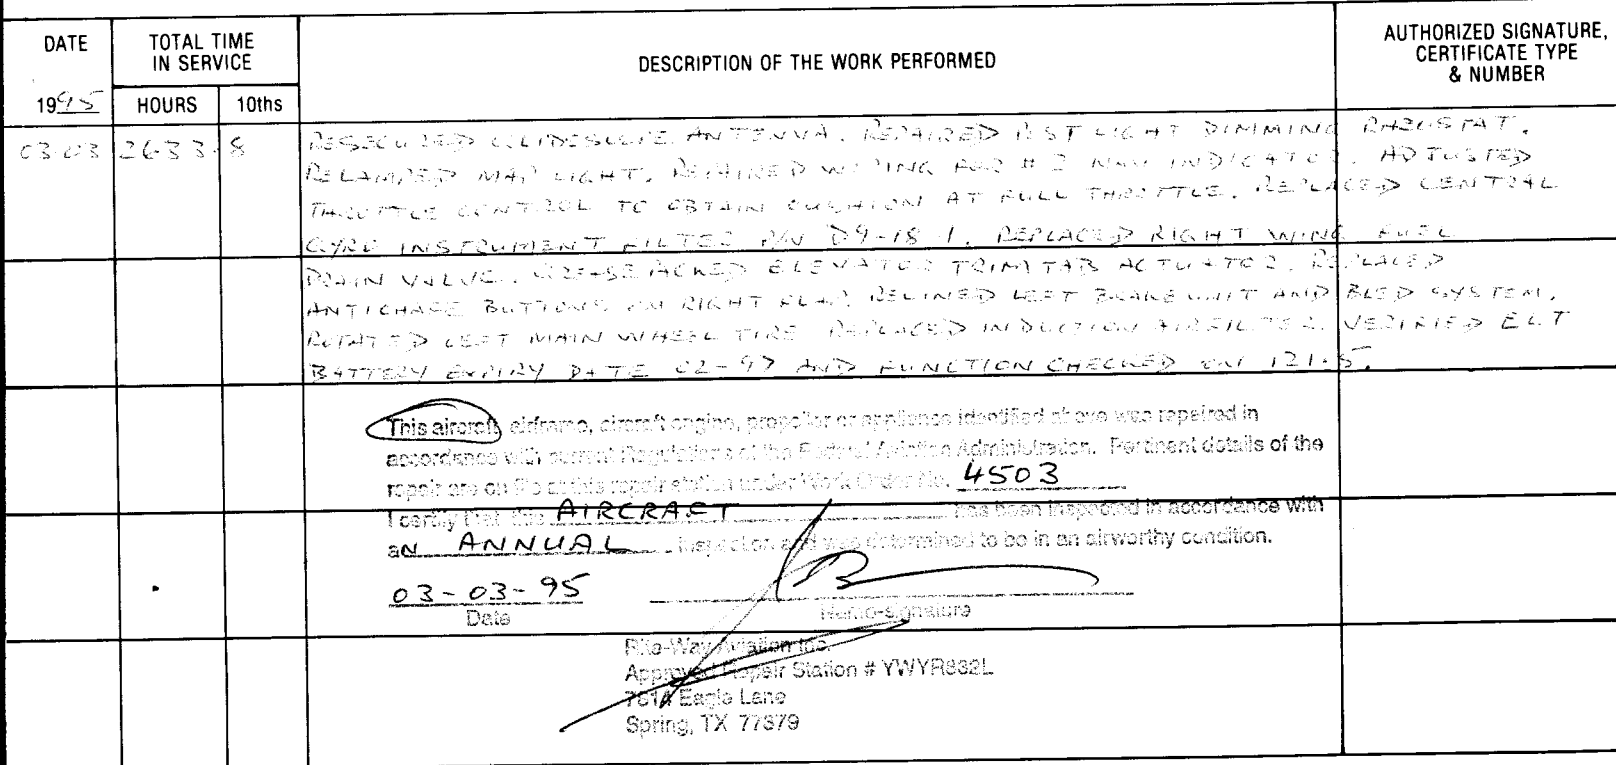 DATE
TOTAL TIME
IN SERVICE
DESCRIPTION OF THE WORK PERFORMED
AUTHORIZED SIGNATURE,
CERTIFICATE TYPE
& NUMBER
1995
HOURS
10ths
03 03 2633.8
RESECURED GLIDESLOPE ANTENNA. REPAIRED LIGHT DIMMING RHEOSTAT.
RELAMPED MAP LIGHT. REPAIRED WIRING FOR # 2 NAV INDICATOR. ADJUSTED
THROTTLE CONTROL TO OBTAIN CUSHION AT FULL THROTTLE. REPLACED CENTRAL
GYRO INSTRUMENT FILTER P/N D9-18-1. REPLACED RIGHT WING FUEL
DRAIN VALVE. ELEVATOR TRIM TAB ACTUATOR. REPLACED
ANTICHAFE BUTTONS ON RIGHT FLAP. RELINED LEFT BRAKE UNIT AND BLED SYSTEM.
ROTATED LEFT MAIN WHEEL TIRE REPLACED INDUCTION AIRFILTER. VERIFIED ELT
BATTERY EXPIRY DATE 02-97 AND FUNCTION CHECKED ON 121.5.
This aircraft, airframe, aircraft engine, propeller or appliance identified above was repaired in
accordance with current Regulations of the Federal Aviation Administration. Pertinent details of the
repair are on file at this repair station under Work Order No. 4503
I certify that this AIRCRAFT has been inspected in accordance with
aN ANNUAL inspection and was determined to be in an airworthy condition.
03-03-95
Date
Name-signature
Aviation Inc.
Approved Repair Station # YWYR832L
Eagle Lane
Spring, TX 77379